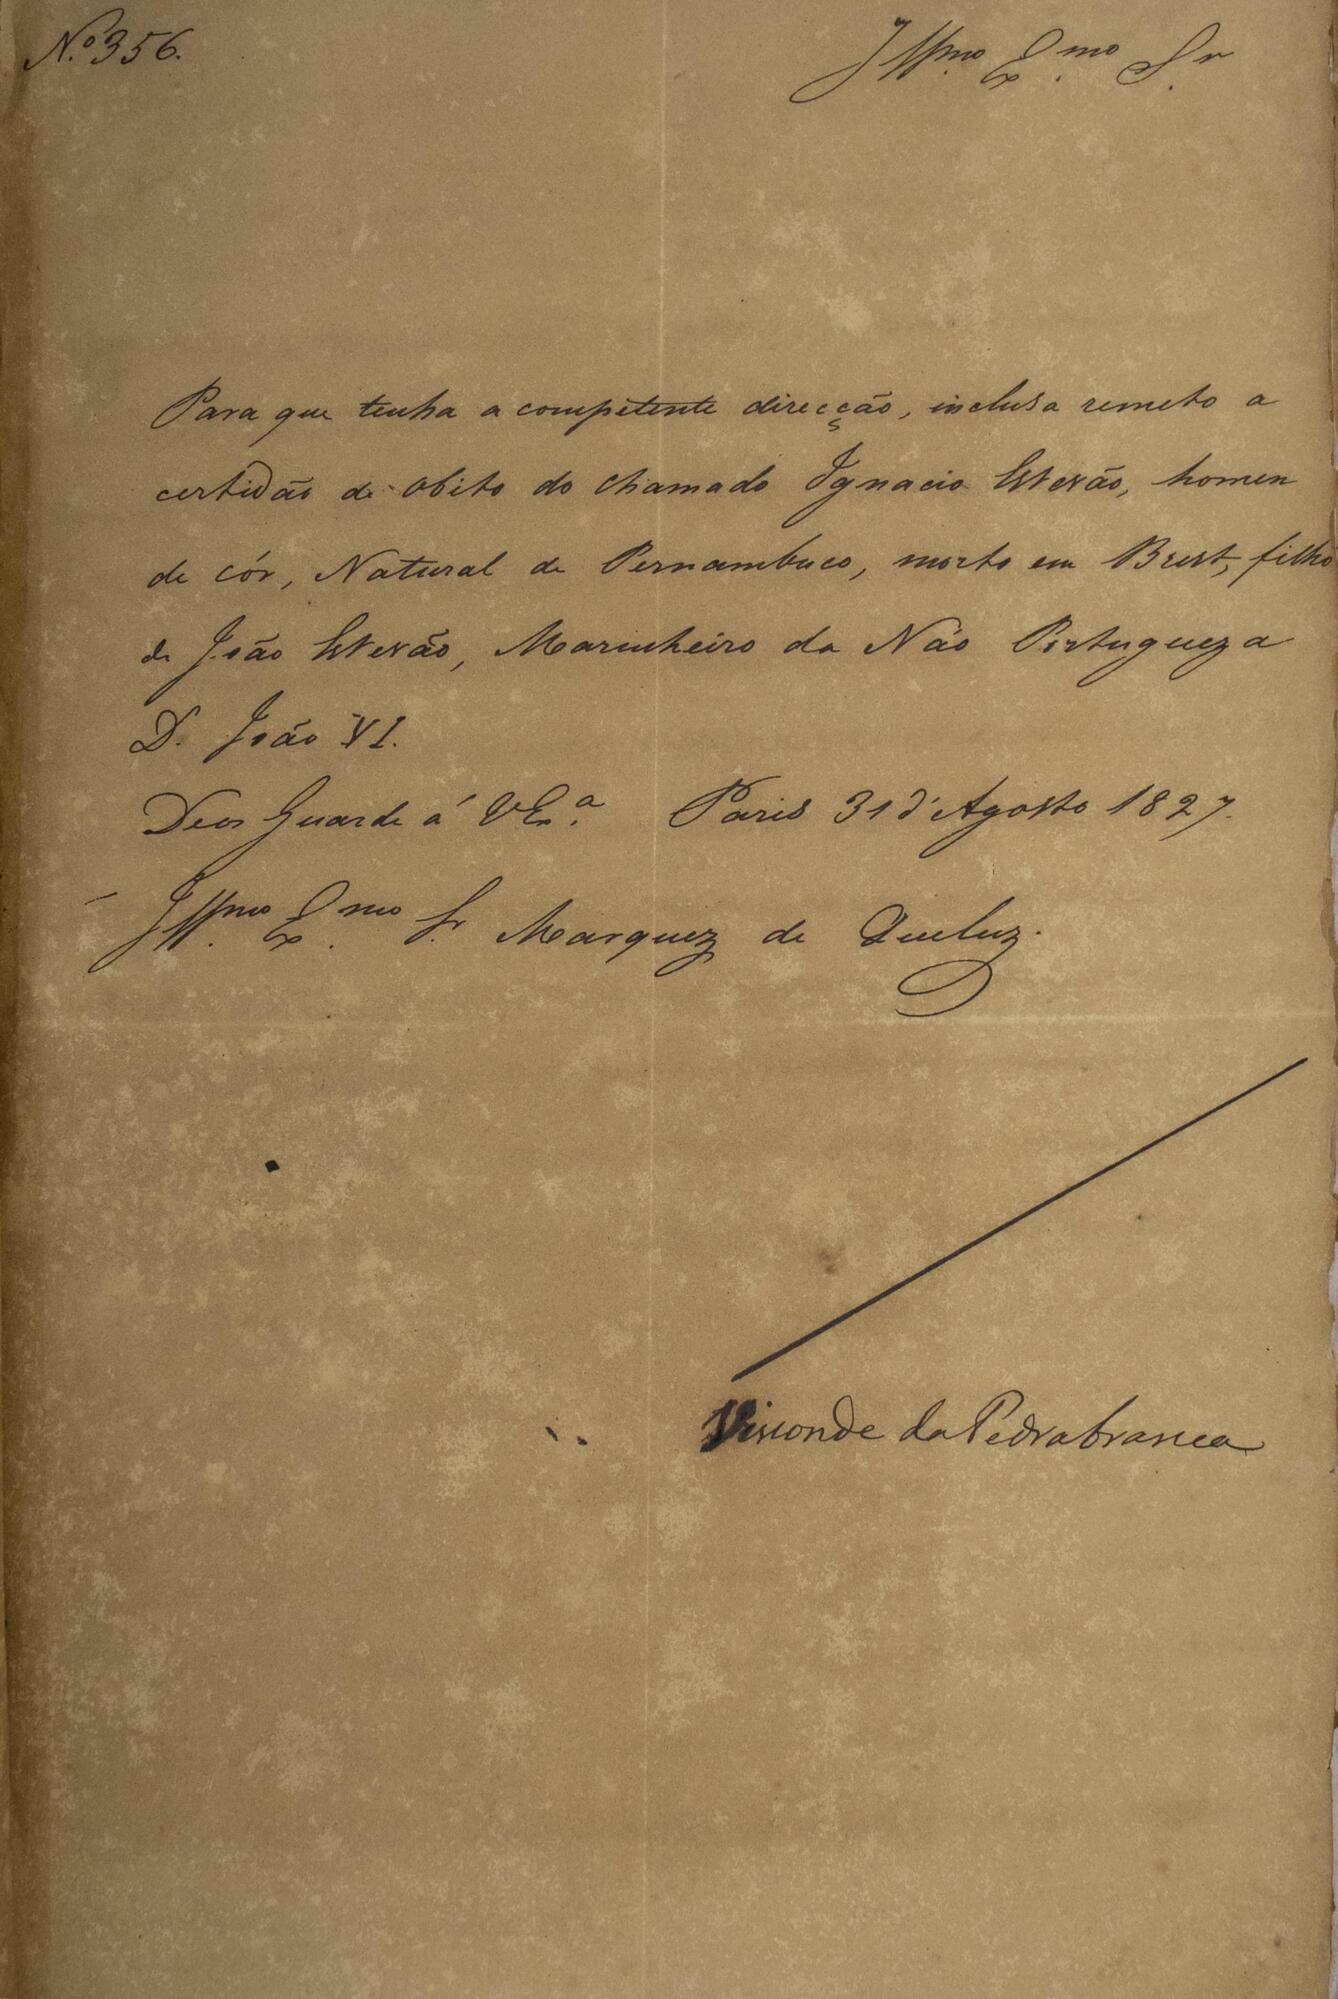 N.º 356.
Illmo. Exmo. Sr.
Para que tenha a competente direcção, inclusa remeto a
certidão de obito do chamado Ignacio Estevão, homen
de côr, Natural de Pernambuco, morto em Brest, filho
de João Estevão, Marinheiro da Náo Portugueza
D. João VI.
Deos Guarde á VEx.ª Paris 31 d'Agosto 1827.
Illmo. Exmo. Sr. Marquez de Queluz.
Visconde da Pedrabranca